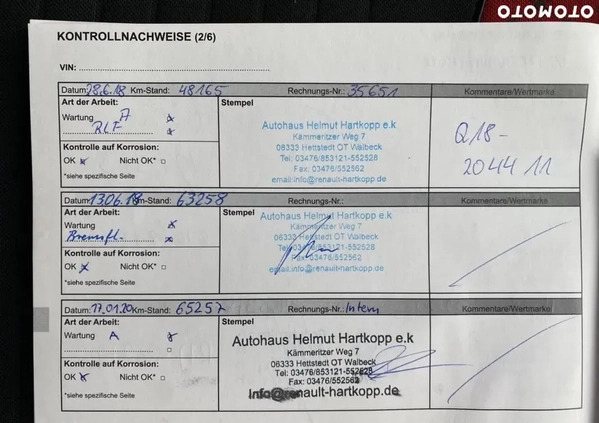 OTOMOTO
KONTROLLNACHWEISE (2/6)
VIN:
Datum: 28.6.18 Km-Stand: 48165 Rechnungs-Nr.: 35651 Kommentare/Wertmarke
Art der Arbeit: Stempel
Wartung A x
RLF x
Autohaus Helmut Hartkopp e.k
Kämmeritzer Weg 7
06333 Hettstedt OT Walbeck
Tel: 03476/853121-552528
Fax: 03476/552562
email:info@renault-hartkopp.de
Q18-
2044 11
Kontrolle auf Korrosion:
OK x Nicht OK* □
*siehe spezifische Seite
Datum: 13.06.18 Km-Stand: 63258 Rechnungs-Nr.: Kommentare/Wertmarke
Art der Arbeit: Stempel
Wartung x
Bremsfl. x
Autohaus Helmut Hartkopp e.k
Kämmeritzer Weg 7
06333 Hettstedt OT Walbeck
Tel: 03476/853121-552528
Fax: 03476/552562
email:info@renault-hartkopp.de
Kontrolle auf Korrosion:
OK x Nicht OK* □
*siehe spezifische Seite
Datum: 17.01.20 Km-Stand: 65257 Rechnungs-Nr.: Intern Kommentare/Wertmarke
Art der Arbeit: Stempel
Wartung A x
□
Autohaus Helmut Hartkopp e.k
Kämmeritzer Weg 7
06333 Hettstedt OT Walbeck
Tel: 03476/853121-552528
Fax: 03476/552562
info@renault-hartkopp.de
Kontrolle auf Korrosion:
OK x Nicht OK* □
*siehe spezifische Seite